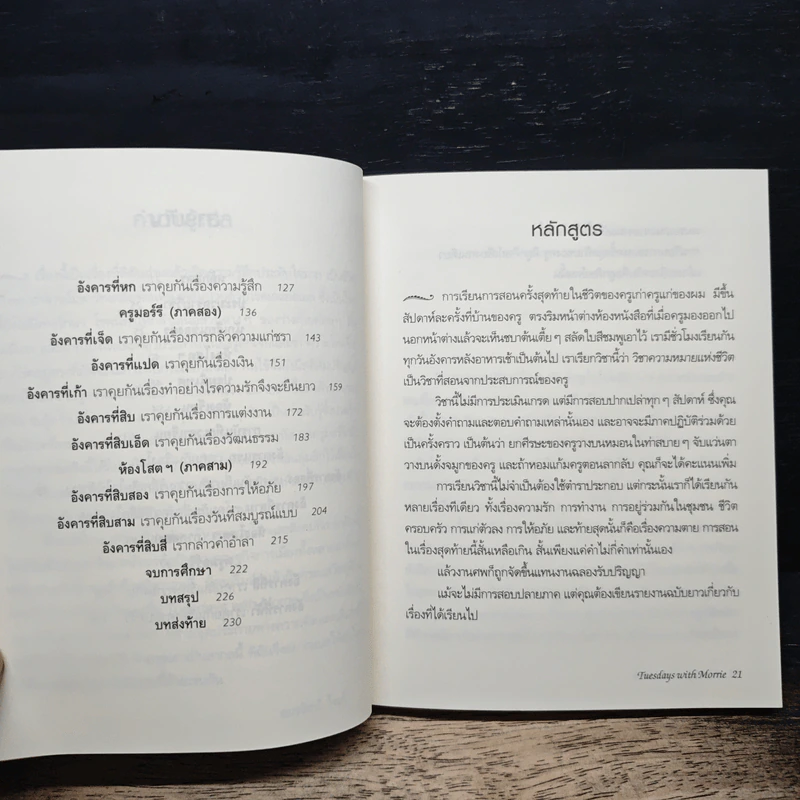 อังคารที่หก เราคุยกันเรื่องความรู้สึก 127
ครูมอร์รี (ภาคสอง) 136
อังคารที่เจ็ด เราคุยกันเรื่องการกลัวความแก่ชรา 143
อังคารที่แปด เราคุยกันเรื่องเงิน 151
อังคารที่เก้า เราคุยกันเรื่องทำอย่างไรความรักจึงจะยืนยาว 159
อังคารที่สิบ เราคุยกันเรื่องการแต่งงาน 172
อังคารที่สิบเอ็ด เราคุยกันเรื่องวัฒนธรรม 183
ห้องโสตฯ (ภาคสาม) 192
อังคารที่สิบสอง เราคุยกันเรื่องการให้อภัย 197
อังคารที่สิบสาม เราคุยกันเรื่องวันที่สมบูรณ์แบบ 204
อังคารที่สิบสี่ เรากล่าวคำอำลา 215
จบการศึกษา 222
บทสรุป 226
บทส่งท้าย 230
หลักสูตร
การเรียนการสอนครั้งสุดท้ายในชีวิตของครูเก่าครูแก่ของผม มีขึ้น
สัปดาห์ละครั้งที่บ้านของครู ตรงริมหน้าต่างห้องหนังสือที่เมื่อครูมองออกไป
นอกหน้าต่างแล้วจะเห็นชบาต้นเตี้ยๆ สลัดใบสีชมพูเอาไว้ เรามีชั่วโมงเรียนกัน
ทุกวันอังคารหลังอาหารเช้าเป็นต้นไป เราเรียกวิชานี้ว่า วิชาความหมายแห่งชีวิต
เป็นวิชาที่สอนจากประสบการณ์ของครู
วิชานี้ไม่มีการประเมินเกรด แต่มีการสอบปากเปล่าทุกๆ สัปดาห์ ซึ่งคุณ
จะต้องตั้งคำถามและตอบคำถามเหล่านั้นเอง และอาจจะมีภาคปฏิบัติร่วมด้วย
เป็นครั้งคราว เป็นต้นว่า ยกศีรษะของครูวางบนหมอนในท่าสบายๆ จับแว่นตา
วางบนดั้งจมูกของครู และถ้าหอมแก้มครูตอนลากลับ คุณก็จะได้คะแนนเพิ่ม
การเรียนวิชานี้ไม่จำเป็นต้องใช้ตำราประกอบ แต่กระนั้นเราก็ได้เรียนกัน
หลายเรื่องทีเดียว ทั้งเรื่องความรัก การทำงาน การอยู่ร่วมกันในชุมชน ชีวิต
ครอบครัว การแก่ตัวลง การให้อภัย และท้ายสุดนั้นก็คือเรื่องความตาย การสอน
ในเรื่องสุดท้ายนี้สั้นเหลือเกิน สั้นเพียงแค่คำไม่กี่คำเท่านั้นเอง
แล้วงานศพก็ถูกจัดขึ้นแทนงานฉลองรับปริญญา
แม้จะไม่มีการสอบปลายภาค แต่คุณต้องเขียนรายงานฉบับยาวเกี่ยวกับ
เรื่องที่ได้เรียนไป
Tuesdays with Morrie 21